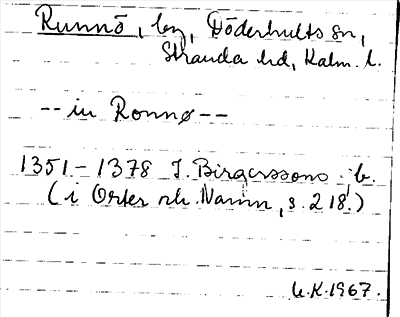 Runnö, by, Döderhults sn,
Stranda hd, Kalm. l.
-- in Ronnø --
1351-1378 J. Birgerssons jb.
(i Orter och Namn, s. 218.)
1967.